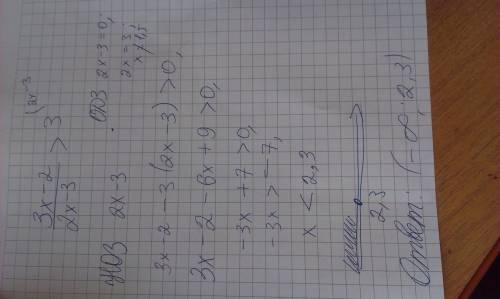 (2x-3
3x-2/2x-3 > 3
НОЗ 2x-3 . ОДЗ 2x-3=0;
2x=3;
x≠1,5
3x-2-3(2x-3)>0,
3x-2-6x+9>0,
-3x+7>0,
-3x>-7,
x<2,3
2,3
Ответ: (-∞; 2,3)